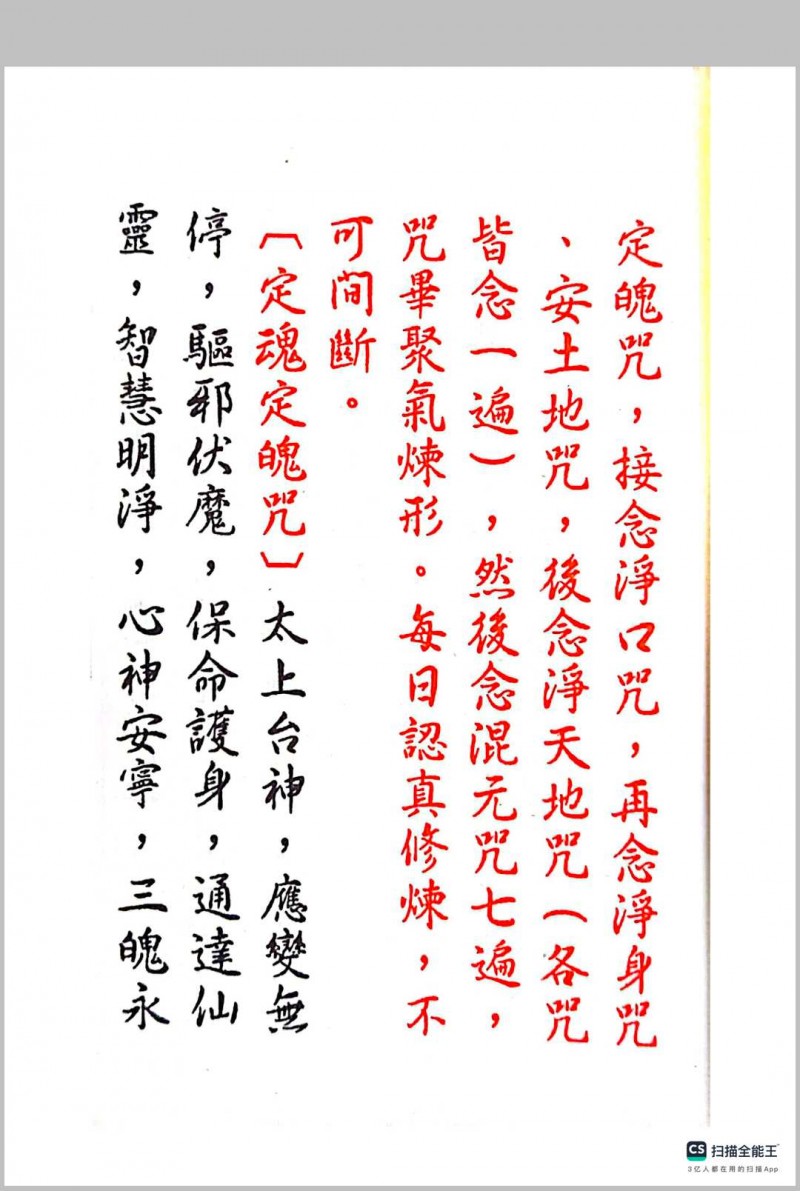 定魄咒，接念淨口咒，再念淨身咒
、安土地咒，後念淨天地咒（各咒
皆念一遍），然後念混元咒七遍，
咒畢聚氣煉形。每日認真修煉，不
可間斷。
〔定魂定魄咒〕太上台神，應變無
停，驅邪伏魔，保命護身，通達仙
靈，智慧明淨，心神安寧，三魄永
CS 扫描全能王
3亿人都在用的扫描App